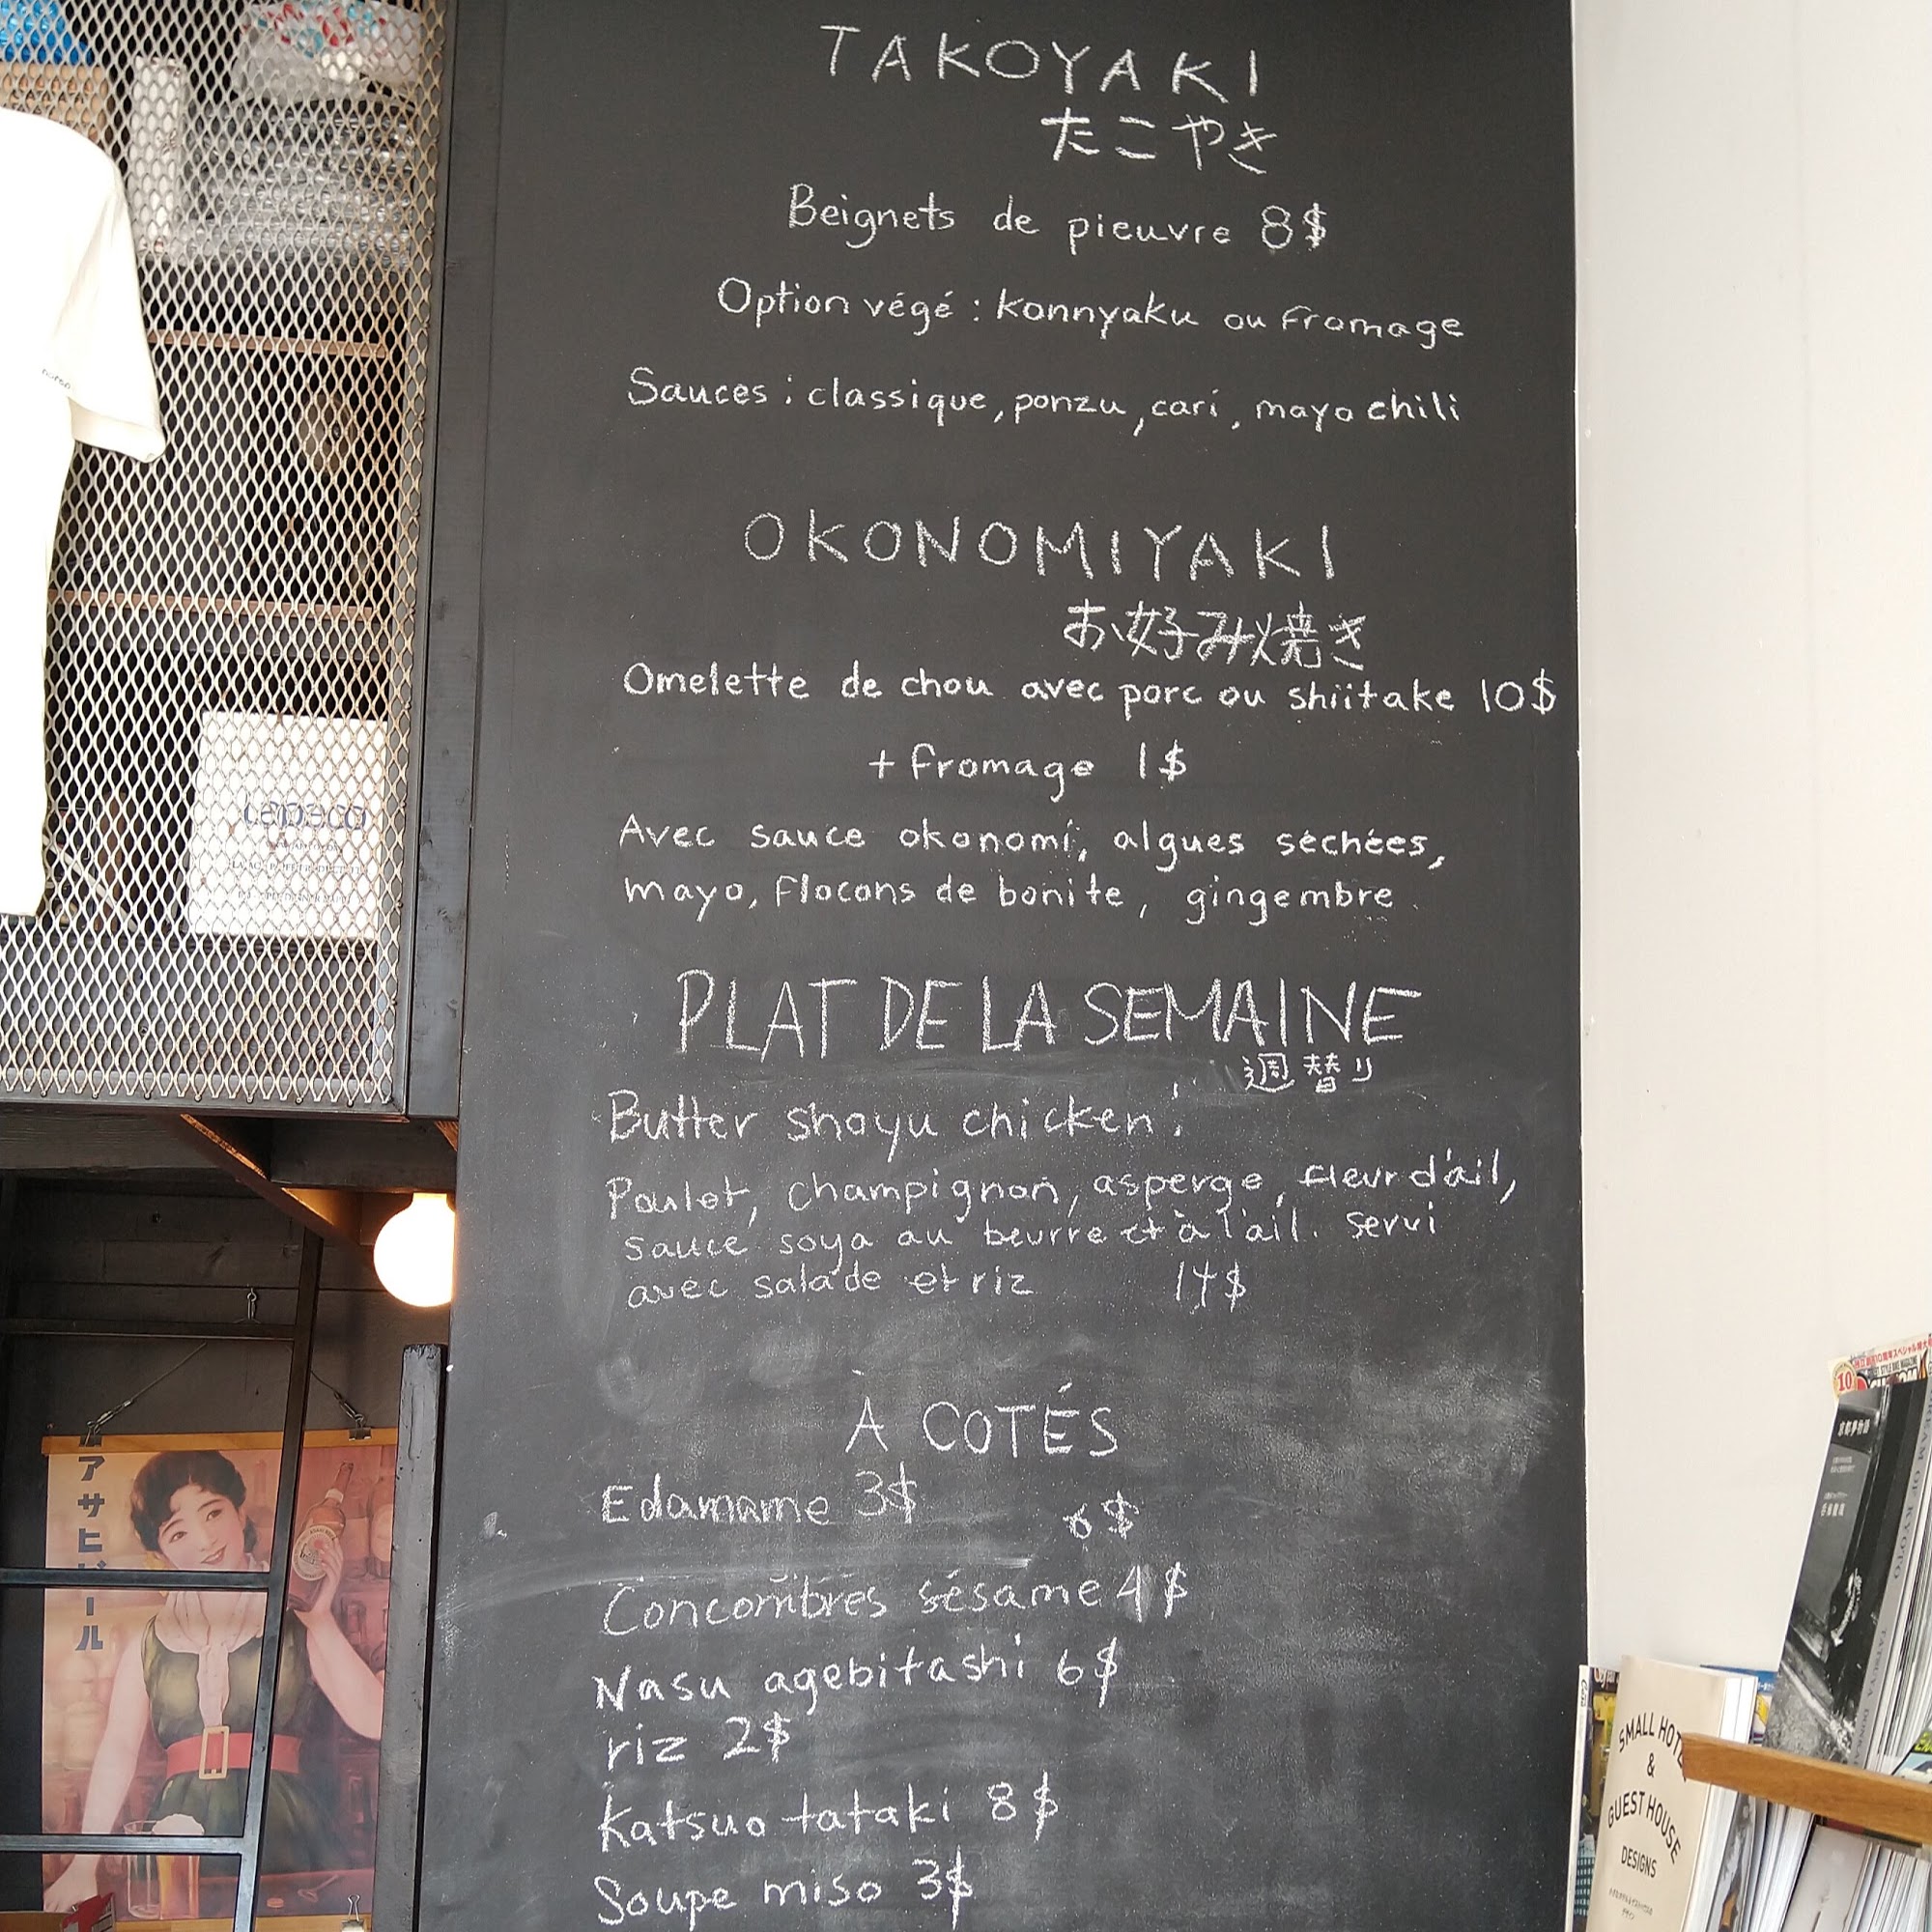 TAKOYAKI
たこやき
Beignets de pieuvre 8$
Option végé : konnyaku ou fromage
Sauces : classique, ponzu, cari, mayo chili
OKONOMIYAKI
お好み焼き
Omelette de chou avec porc ou shiitake 10$
+ fromage 1$
Avec sauce okonomi, algues séchées,
mayo, flocons de bonite, gingembre
PLAT DE LA SEMAINE
週替り
Butter shoyu chicken :
Poulet, champignon, asperge, fleur d'ail,
sauce soya au beurre et à l'ail. servi
avec salade et riz 14$
À COTÉS
Edamame 3$
6$
Concombres sésame 4$
Nasu agebitashi 6$
riz 2$
Katsuo tataki 8$
Soupe miso 3$
アサヒビール
SMALL HOTEL
&
GUEST HOUSE
DESIGNS